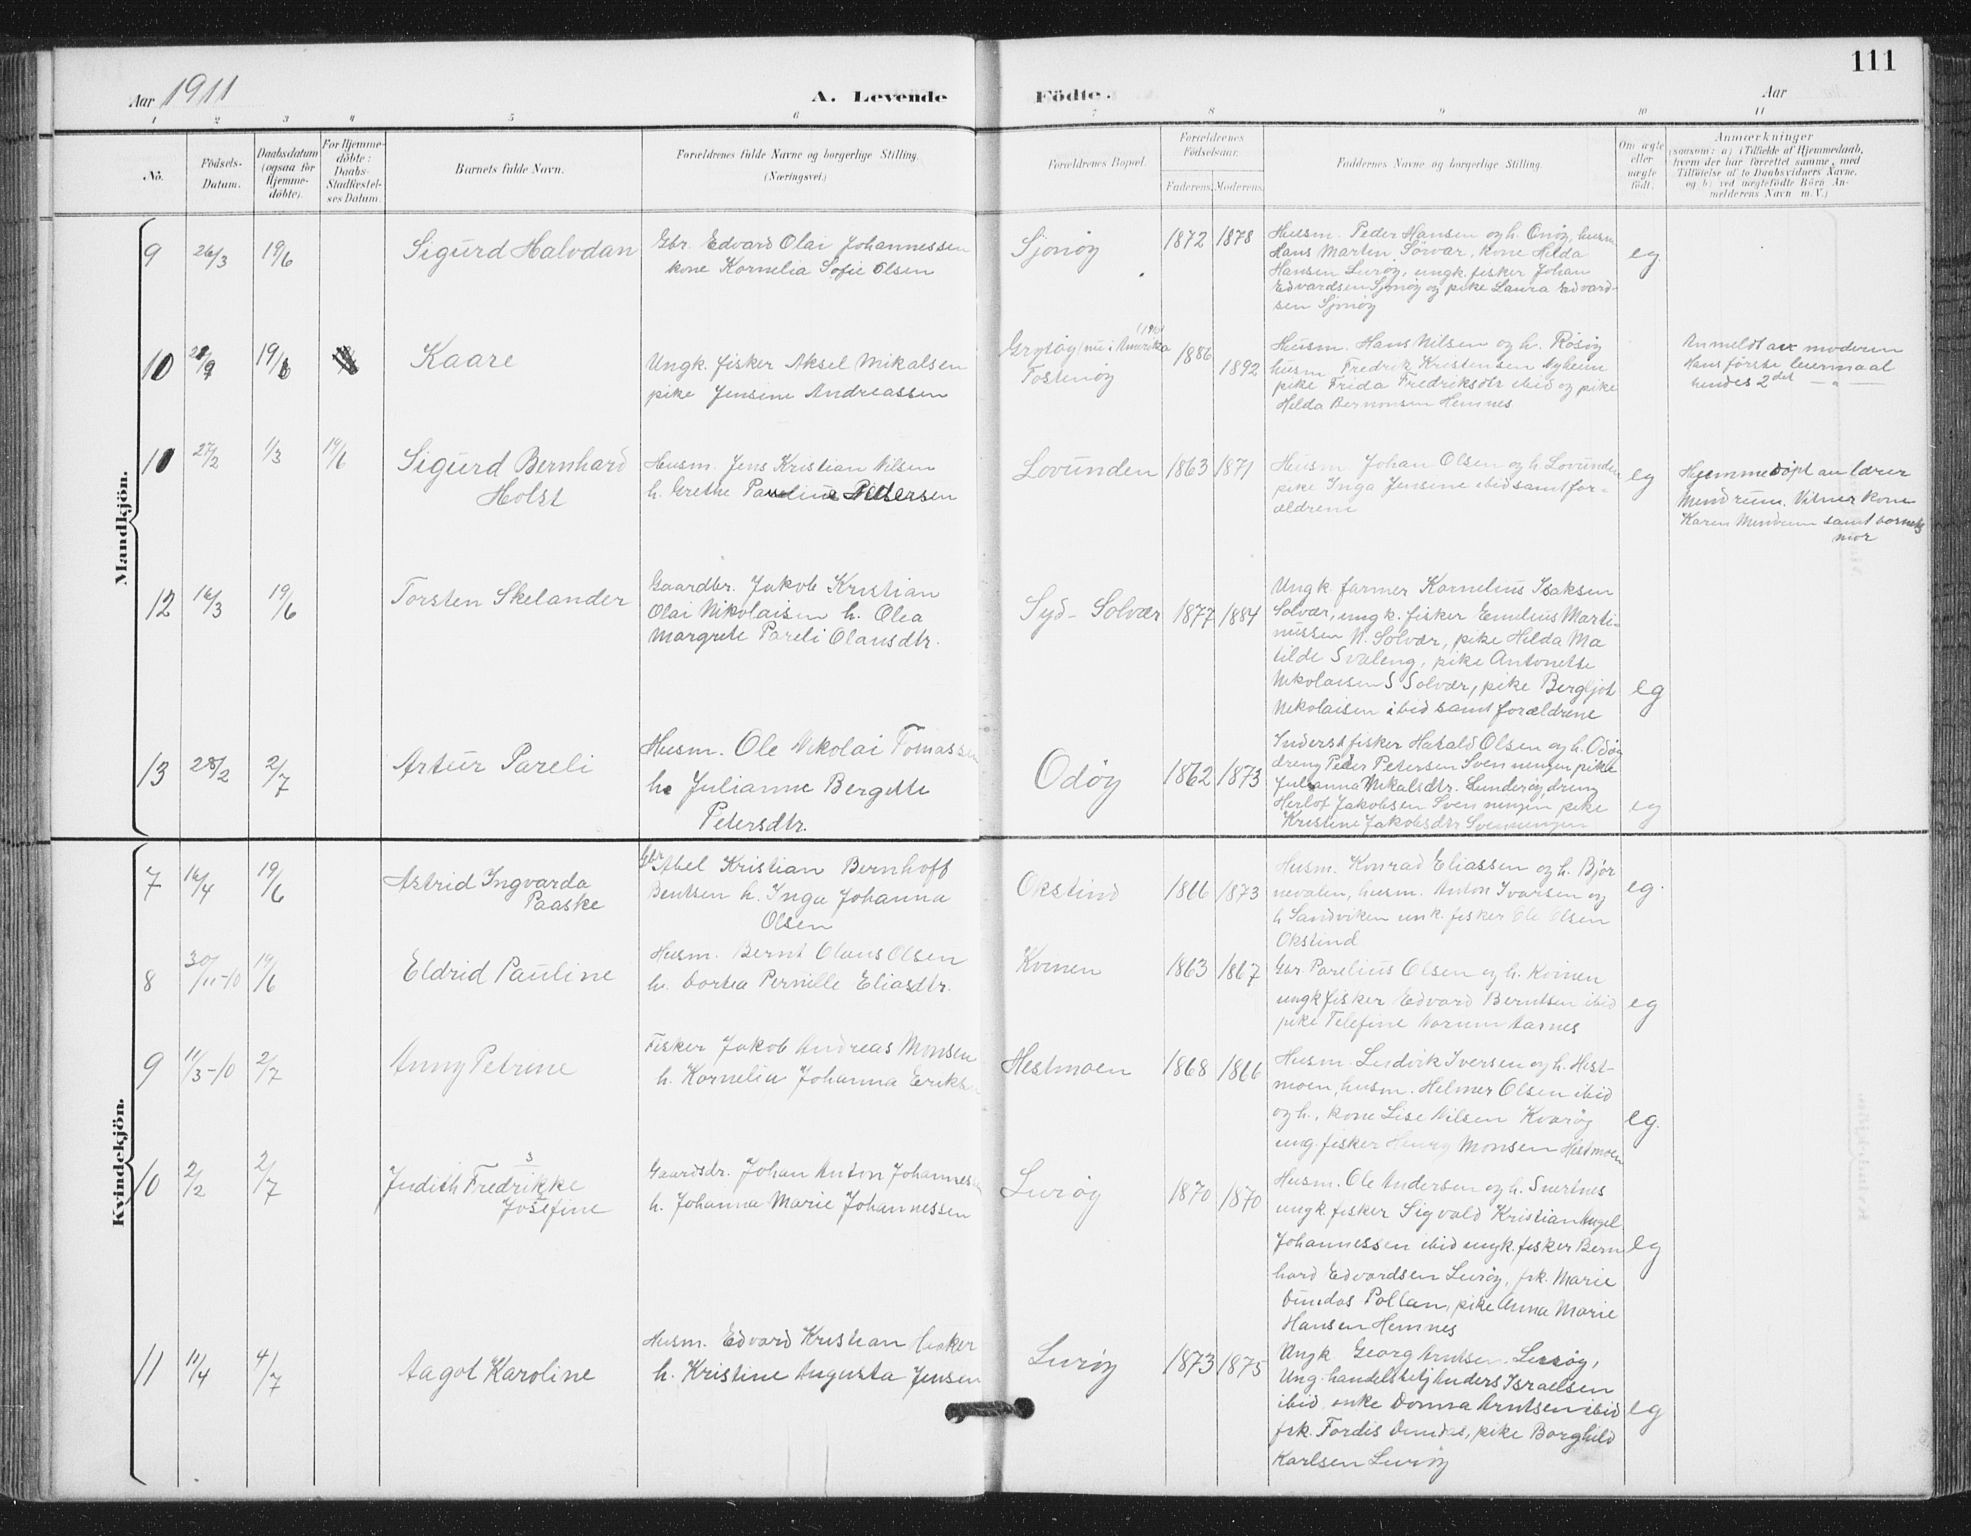 111
Aar 1911
A. Levende Födte.
Aar
1 2 3 4 5 6 7 8 9 10 11
No.
Födsels-Datum.
Daabsdatum (ogsaa for Hjemme-döbte).
For Hjemme-döbte: Daabs-Stadfæstel-ses Datum.
Barnets fulde Navn.
Forældrenes fulde Navne og borgerlige Stilling.
(Næringsvei.)
Forældrenes Bopæl.
Forældrenes Födselsaar.
Faderens. Moderens.
Faddernes Navne og borgerlige Stilling.
Om ægte eller uægte födt.
Anmærkninger
(saasom: a) i Tilfælde af Hjemmedaab,
hvem der har forrettet samme, med
Tilföielse af to Daabsvidners Navne,
og b) ved uægtefödte Börn An-
melderens Navn m. V.)
Mandkjön.
9 26/3 19/6 Sigurd Halvdan
Gbr. Edvard Olai Johannessen
kone Kornelia Sofie Olsen
Sjonøy 1872 1878
Husm. Peder Hansen og h. Onøy, husm
Hans Martin Sørvar, kone Hilda
Hansen Lurøy, ungk. fisker Johan
Edvardsen Sjonøy og pike Laura Edvard-
sen Sjonøy
eg.
10 19/6 Kaare
Ungk. fisker Aksel Mikalsen
pike Jensine Andreassen
Grytøy (nu i Amerika
Tostenøy
1886 1892
Husm. Hans Nilsen og h. Rosøy
husm Fredrik Kristensen Nyheim
pike Frida Fredriksdtr ibid og pike
Hilda Bernonsen Hemnes.
Anmeldt av moderen
Hans første leiermaal
hendes 2det — " —
11 27/2 1/3 19/6 Sigurd Bernhard
Holst
Husm. Jens Kristian Nilsen
h. Grethe Pauline Pedersen
Lovunden 1863 1871
Husm Johan Olsen og h. Lovunden
pike Inga Jensine ibid samt for-
ældrene
eg
Hjemmedøpt av lærer
Mendrum. Vitner kone
Karen Mendrum samt barnets
mor
12 16/3 19/6 Torsten Skelander
Gaardbr. Jakob Kristian
Olai Nikolaisen h. Olea
Margrete Pareli Olausdtr.
Syd-Solvær 1877 1884
Ungk. farmer Kornelius Isaksen
Solvær, ungk. fisker Emelius Marti-
nussen N. Solvær, pike Hilda Ma
tilde Svaleng, pike Antonette
Nikolaisen S Solvær, pike Bergljot
Nikolaisen ibid samt forældrene
eg
13 28/2 2/7 Artur Pareli
Husm. Ole Nikolai Tomassen
h. Julianne Bergitte
Petersdtr.
Odøy 1862 1873
Inderst fisker Harald Olsen og h. Odøy
dreng Peder Petersen Svenningen pike
Julianna Nikalsdtr. Lunderøy, dreng
Herlof Jakobsen Svenningen pike
Kristine Jakobsdtr Svenningen
eg
Kvindekjön.
7 16/4 19/6 Astrid Ingvarda
Paaske
Gbr Abel Kristian Bernhoff
Bentsen h. Inga Johanna
Olsen
Okstind 1866 1873
Husm. Konrad Eliassen og h. Bjør
nevalen, husm. Anton Ivarsen og
h Sandviken unk. fisker Ole Olsen
Okstind
eg.
8 30/11-10 19/6 Eldrid Pauline
Husm. Bernt Olaus Olsen
h. Dortea Pernille Eliasdtr.
Kvinen 1863 1867
Gbr. Parelius Olsen og h. Kvinen
ungk fisker Edvard Berntsen ibid
pike Telefine Norum Aarnes
eg
9 11/3-10 2/7 Anny Petrine
Fisker Jakob Andreas Monsen
h. Kornelia Johanna Eriks
Hestmoen 1868 1866
Husm. Ludvik Iversen og h. Hest-
moen, husm. Helmer Olsen ibid
og h., kone Lise Nilsen Kvarøy
ung. fisker Henry Monsen Hestmoen
eg.
10 2/2 2/7 Judith Fredrikke
Josefine
Gaardbr. Johan Anton Johannesen
h. Johanna Marie Johannessen
Lurøy 1870 1870
Husm. Ole Andersen og h. Snertnes
ungk fisker Sigvald Kristian Angel
Johannessen ibid ungk. fisker Bern
hard Edvardsen Lurøy, frk. Marie
Dundas Pollan, pike Anna Marie
Hansen Hemnes
eg
11 11/4 4/7 Aagot Karoline
Husm. Edvard Kristian
h. Kristine Augusta Jensen
Lurøy 1873 1875
Ungk Georg Arntsen Lurøy,
Ung. handelsbetj Anders Israelsen
ibid. enke Donna Arntsen ibid
frk. Tordis Dundas, pike Borghild
Karlsen Lurøy
eg